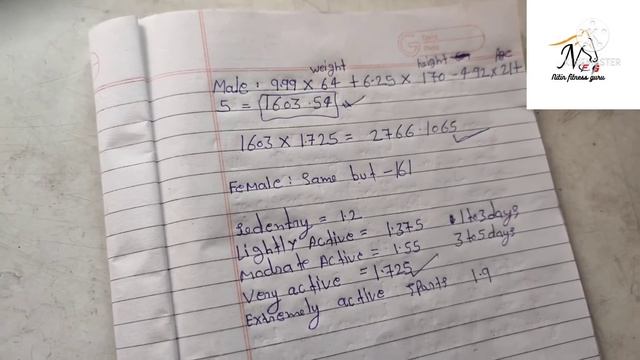 weight height Age
Male: 9.99 × 64 + 6.25 × 170 - 4.92 × 21 +
5 = 1603.54
1603 × 1.725 = 2766.1065
Female: Same but -161
Sedentry = 1.2
Lightly Active = 1.375 1 to 3 days
Madrate Active = 1.55 3 to 5 days
Very active = 1.725
Extremely active sports 1.9
NFG
Nitin fitness guru